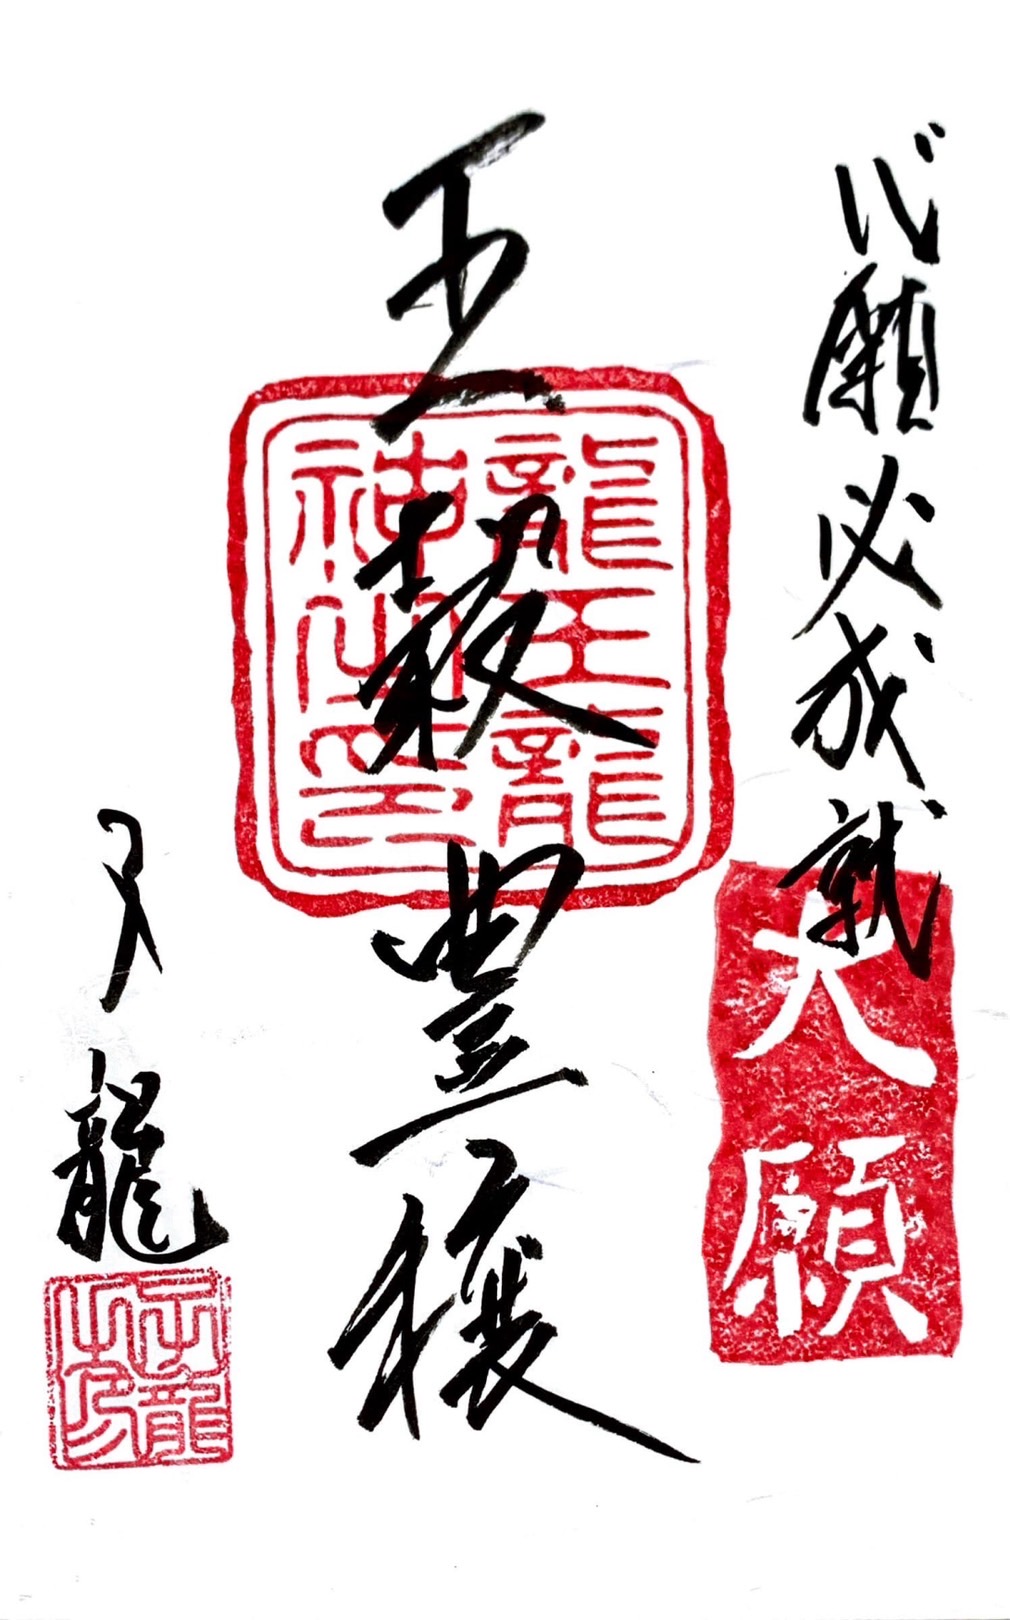 代願必成就
大願
五穀豊穣
龍王龍
神之印
天龍